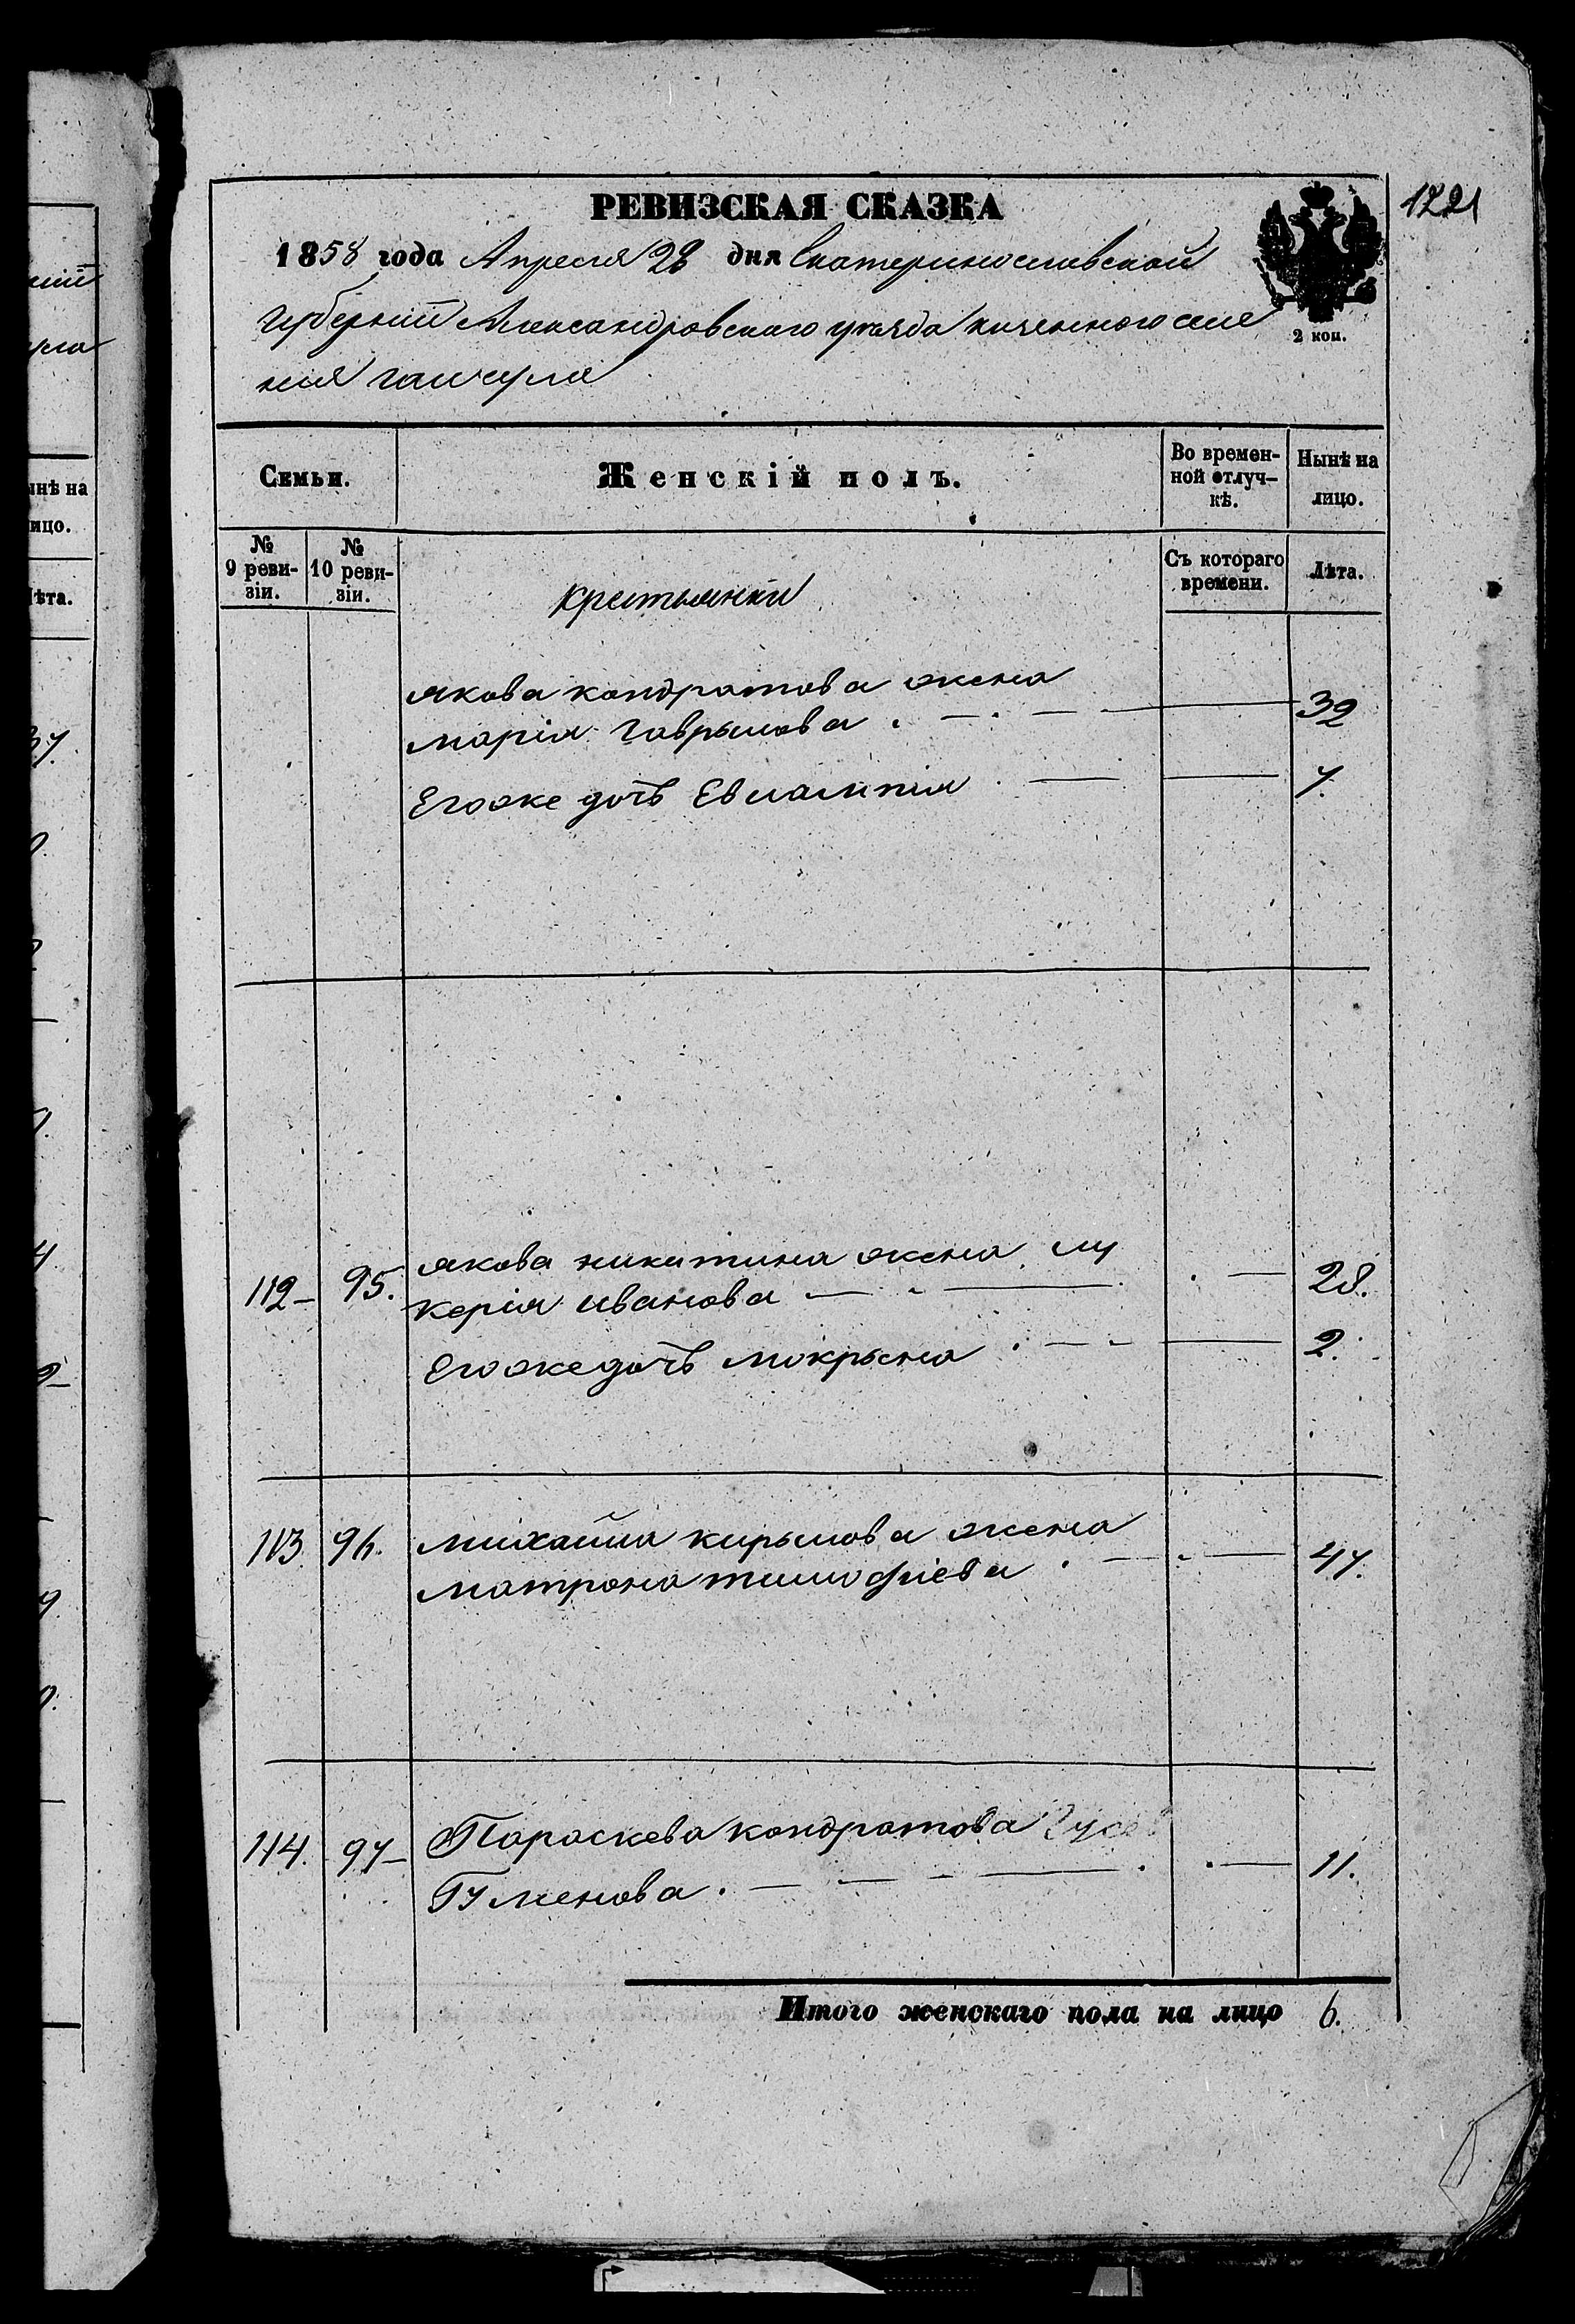 1221
РЕВИЗСКАЯ СКАЗКА
1858 года Апреля 28 дня Екатеринославской
Губерніи Александровского уезда казенного селе
ния гайчула
2 коп.
Семьи.
Женскій полъ.
Во времен-
ной отлуч-
кѣ.
Нынѣ на
лицо.
№
9 реви-
зіи.
№
10 реви-
зіи.
крестьянки
Съ котораго
времени.
Лѣта.
якова кондратова жена
марія Гаврылова 32
Егоже дочь Евлампія 7.
якова никитина жена лу
112 95. керія иванова 28.
Егоже дочь мокрына 2.
113 96. михайла кирылова жена
матрона тимофіева 47.
114. 97 Параскева кондратова Гусев
Гуменова. 11.
Итого женскаго пола на лицо 6.